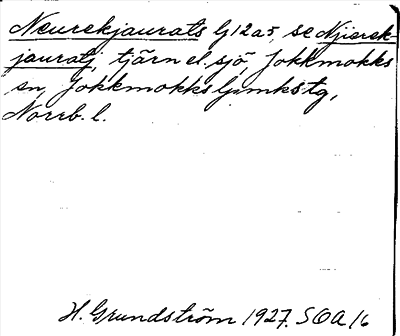 Neurekjaurats G12a5, se Njierek-
jauratj, tjärn el. sjö, Jokkmokks
sn, Jokkmokks lpmkstg,
Norrb. l.
H. Grundström 1927. SOA 16